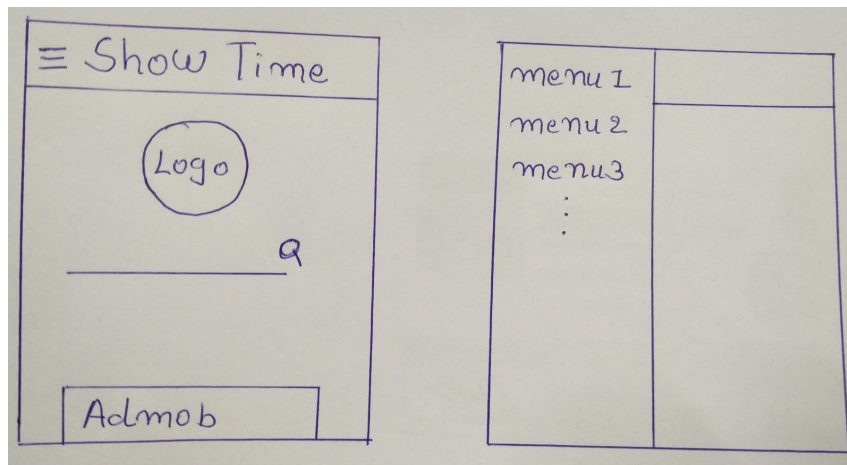 Show Time
Logo
Admob
menu 1
menu 2
menu3